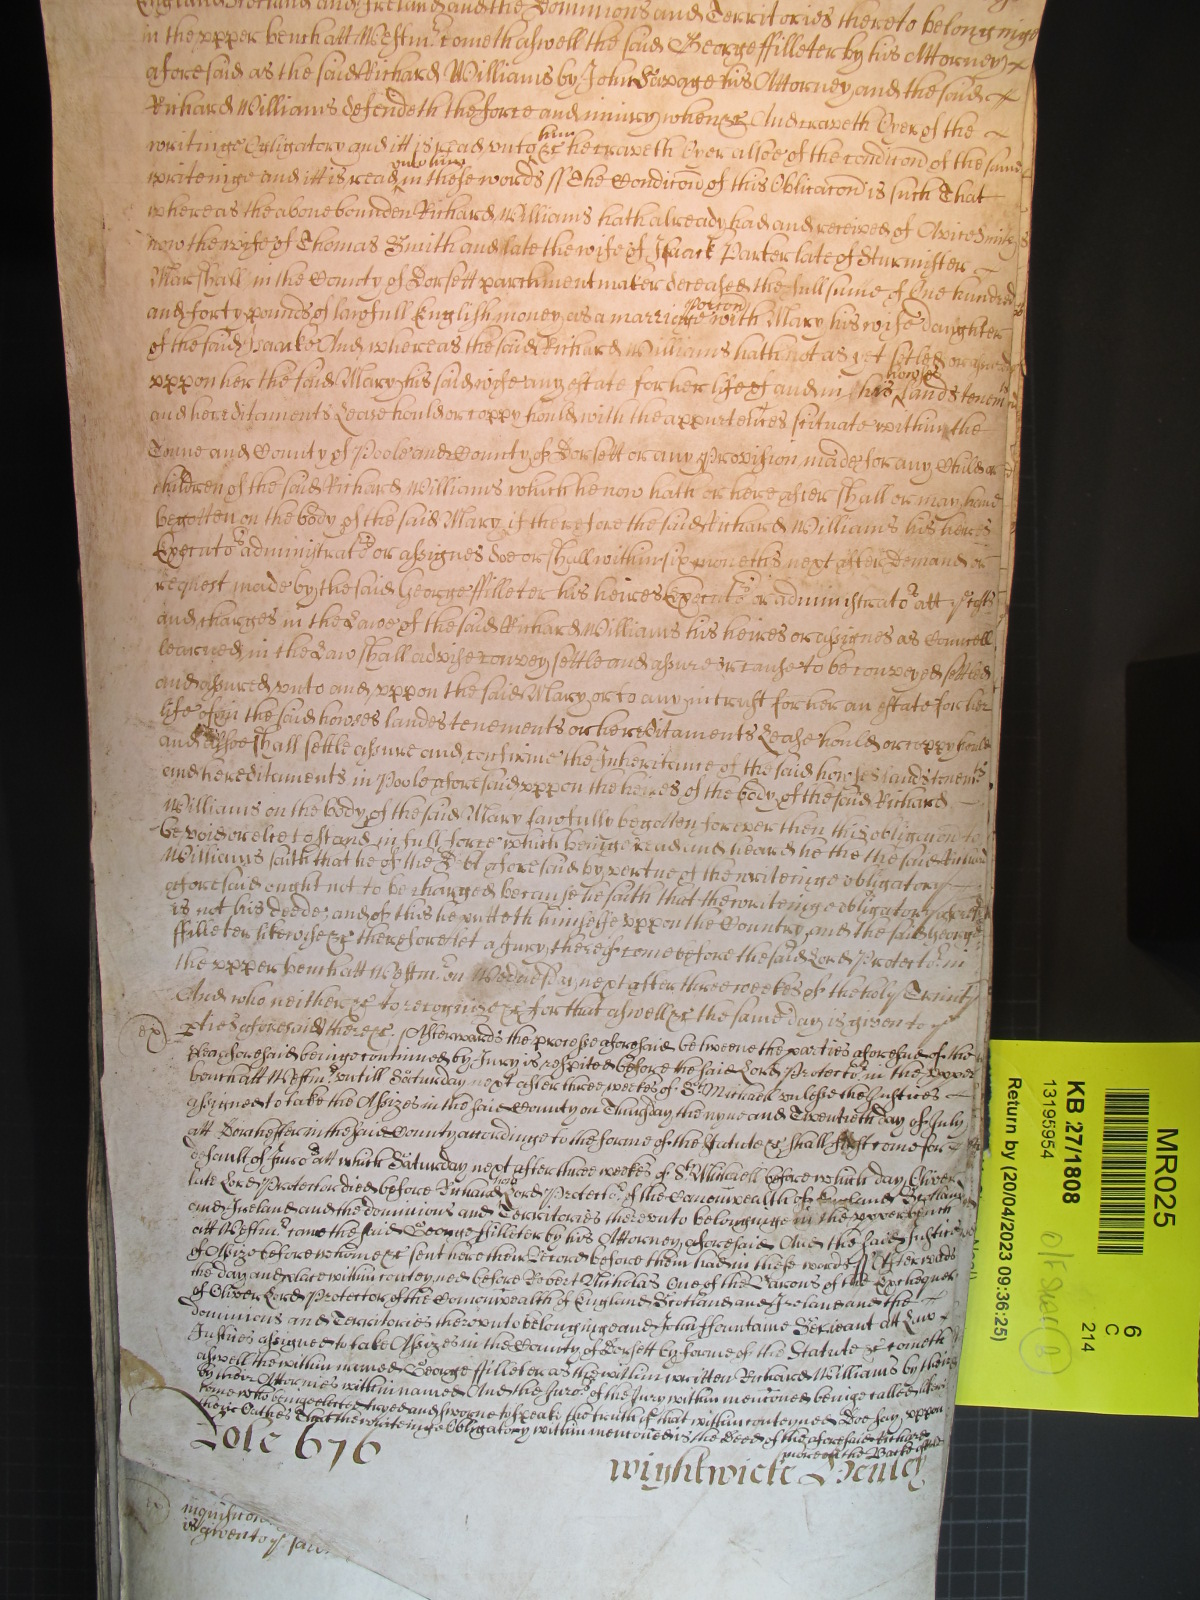 England Scotland and Ireland and the Dominions and Territories thereto belonginge
in the vpper bench att Westmr. cometh aswell the said George ffilleter by his Attorney
aforesaid as the said Richard Williams by John Savage his Attorney and the said
Richard Williams defendeth the force and iniury when &c And craveth Oyer of the
writinge Obligatory and itt is read vnto him &c he craveth Oyer alsoe of the condicon of the same
writeinge and itt is read vnto him in these words ss The Condicon of this Obligacon is such That
whereas the above bounden Richard Williams hath already had and received of Avice Smith
now the wife of Thomas Smith and late the wife of Isaack Parker late of Sturmister
Marshall in the County of Dorsett parchment maker deceased the full sume of One hundred
and forty pounds of lawfull English money as a marriage porcon with Mary his wife daughter
of the said Isaacke And whereas the said Richard Williams hath not as yet setled or assured
vppon her the said Mary his said wife any estate for her life of and in his howses lands tenemts
and hereditaments Lease hould or coppy hould with the appurtences scituate within the
Towne and County of Poole and County of Dorsett or any Provision made for any Child or
children of the said Richard Williams which he now hath or hereafter shall or may have
begotten on the body of the said Mary if therefore the said Richard Williams his heires
Executors administrators or assignes doe or shall within six moneths next after Demand or
request made by the said George ffilleter his heires Executors or administrators att costs
and charges in the Lawe of the said Richard Williams his heires or assignes as Councell
learned in the Law shall advise convey settle and assure or cause to be conveyed setled
and assured vnto and vppon the said Mary or to any in trust for her an estate for her
life of in the said howses landes tenements or hereditaments Lease hould or coppy hould
and alsoe shall settle assure and confirme the Inheritance of the said howses lands tenemts
and hereditaments in Poole aforesaid vppon the heires of the body of the said Richard
Williams on the body of the said Mary lawfully begotten for ever then this obligacon to
be void or else to stand in full force which beinge read and heard he the the said Richard
Williams saith that he of the Debt aforesaid by vertue of the writeinge obligatory
aforesaid ought not to be charged because he saith that the writeinge obligatory aforesd
is not his deede, and of this he putteth himselfe vppon the Country, and the said George
ffilleter likewise &c therefore let a Jury thereof come before the said Lord Protector in
the vpper bench att Westmr. on Wednesday next after three weekes of the holy Trinity
And who neither &c to recognize &c for that aswell &c the same day is given to ye
pties aforesaid there &c. Afterwards the processe aforesaid betweene the parties aforesaid of the
plea aforesaid beinge continued by Jury is respited before the said Lord Protector in the vpper
bench att Westmr. vntill Saturday next after three weekes of St Michaell vnlesse the Justices
assigned to take the Assizes in the said County on Thursday the nyne and Twentieth day of July
att Dorchester in the said County accordinge to the forme of the Statute &c shall first come for
default of Jurors att which Saturday next after three weekes of St Michaell before which day Oliver
late Lord Protector died before Richard now Lord Protector of the Comonwealth of England Scotland
and Ireland and the dominions and Territories therevnto belonginge in the vpper bench
att Westmr. came the said George ffilleter by his Attorney aforesaid And the said Justices
of Assize before whome &c sent here their Record before them had in these words ss Afterwards
the day and place within conteyned before Robert Nicholas One of the Barons of the Exchequer
of Oliver Lord Protector of the Comonwealth of England Scotland and Ireland and the
dominions and Territories therevnto belonginge and John ffountaine Serjeant att Law
Justices assigned to take Assizes in the County of Dorsett by forme of the Statute &c cometh
aswell the within named George ffilleter as the within written Richard Williams by their
by their Attornies within named And the Jurors of the Jury within menconed beinge called likewise
come who beinge elected tryed and sworne to speake the truth of that within conteyned Doe say vppon
theire Oathes That the writeinge Obligatory within menconed is the deed of the aforesaid Richard
more on the Backe
Dole 676
wightwicke Henley
inquisicon
is given to ye said
MR025
KB 27/1808
13195954
Return by (20/04/2023 09:36:25)
6
C
214